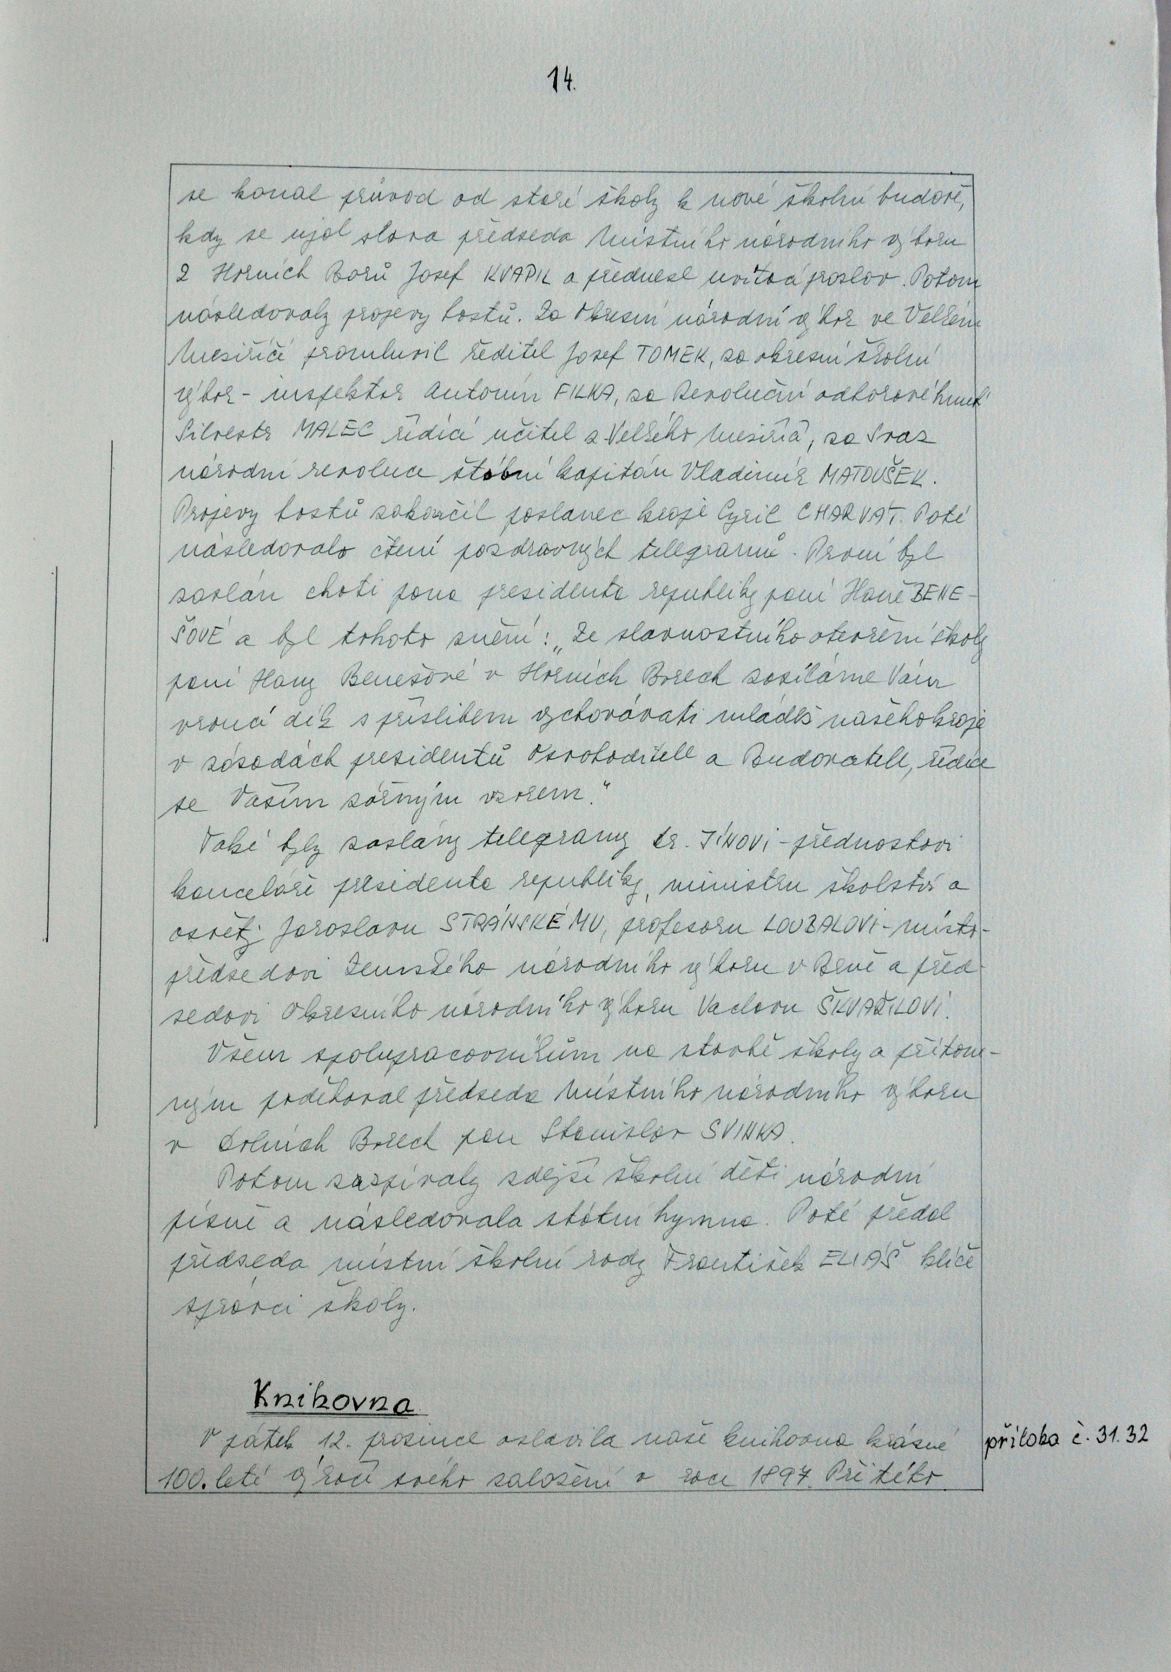 14.
se konal průvod od staré školy k nové školní budově,
kdy se ujal slova předseda Místního národního výboru
z Horních Borů Josef KVAPIL a přednesl uvítací proslov. Potom
následovaly projevy hostů. Za Okresní národní výbor ve Velkém
Meziříčí promluvil ředitel Josef TOMEK, za okresní školní
výbor - inspektor Antonín FILKA, za Revoluční odborové hnutí
Silvestr MALEC řídící učitel z Velkého Meziříčí, za Svaz
národní revoluce štábní kapitán Vladimír MATOUŠEK.
Projevy hostů zakončil poslanec kraje Cyril CHARVÁT. Poté
následovalo čtení pozdravných telegramů. První byl
zaslán choti pana presidenta republiky paní Haně BENE-
ŠOVÉ a byl tohoto znění: „Ze slavnostního otevření školy
paní Hany Benešové v Horních Borech zasíláme Vám
vroucí dík s příslibem vychovávati mládež našeho kraje
v zásadách presidentů Osvoboditele a Budovatele, řídíce
se Vaším zářným vzorem."
Také byly zaslány telegramy dr. JÍNOVI - přednostovi
kanceláře presidenta republiky, ministru školství a
osvěty Jaroslavu STRÁNSKÉMU, profesoru LOUBALOVI - místo-
předsedovi Zemského národního výboru v Brně a před-
sedovi Okresního národního výboru Václavu ŠKVAŘILOVI.
Všem spolupracovníkům na stavbě školy a přítom-
ným poděkoval předseda Místního národního výboru
v Dolních Borech pan Stanislav SVINKA.
Potom zazpívaly zdejší školní děti národní
písně a následovala státní hymna. Poté předal
předseda místní školní rady František ELIÁŠ klíče
správci školy.
Knihovna
V pátek 12. prosince oslavila naše knihovna krásné
příloha č. 31.32
100. leté výročí svého založení v roce 1897. Při této